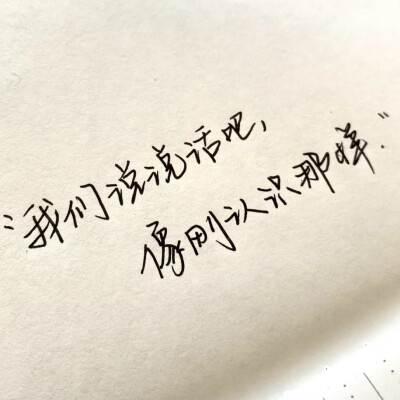 “我们说说话吧，
像刚认识那样.”